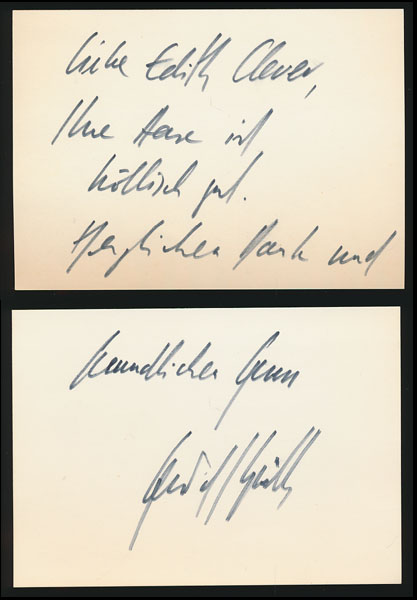 Liebe Edith Clever,
Ihre Aase ist
höllisch gut.
Herzlichen Dank und
freundlichen Gruss